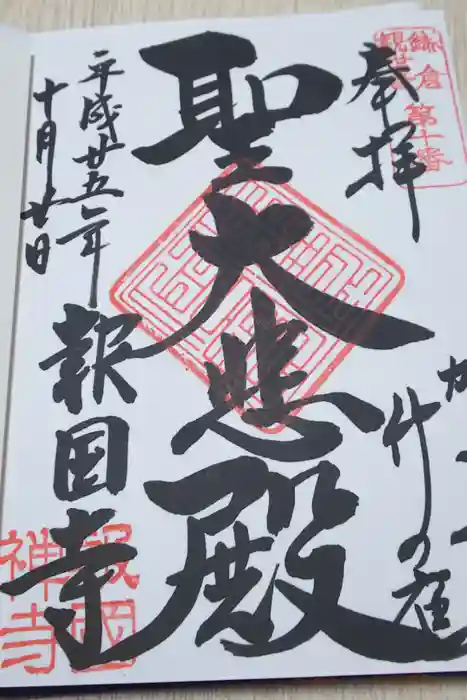 鎌倉第十番
観世音
奉拝
かまくら
竹の庭
聖大悲殿
平成廿五年
十月廿日
報国寺
報國
禅寺